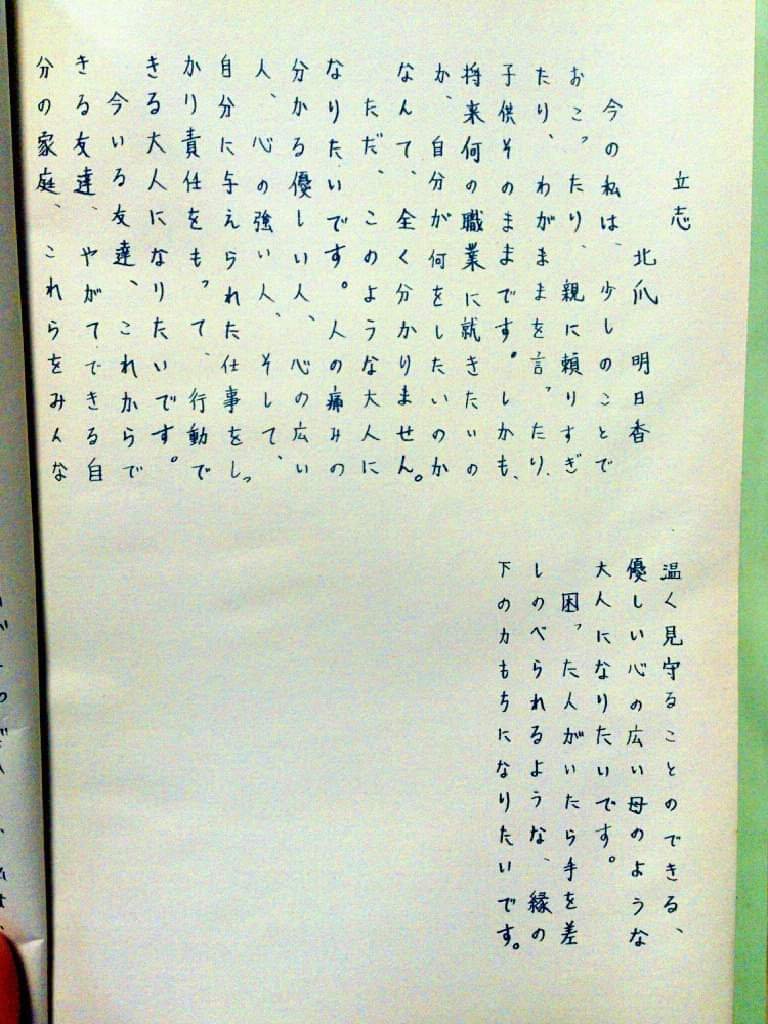 立志
北爪 明日香
今の私は、少しのことで
おこったり、親に頼りすぎ
たり、わがままを言ったり、
子供そのままです。しかも、
将来何の職業に就きたいの
か、自分が何をしたいのか
なんて、全く分かりません。
ただ、このような大人に
なりたいです。人の痛みの
分かる優しい人、心の広い
人、心の強い人、そして、
自分に与えられた仕事をしっ
かり責任をもって、行動で
きる大人になりたいです。
今いる友達、これからで
きる友達、やがてできる自
分の家庭、これらをみんな
温く見守ることのできる、
優しい心の広い母のような
大人になりたいです。
困った人がいたら手を差
しのべられるような、縁の
下の力もちになりたいです。